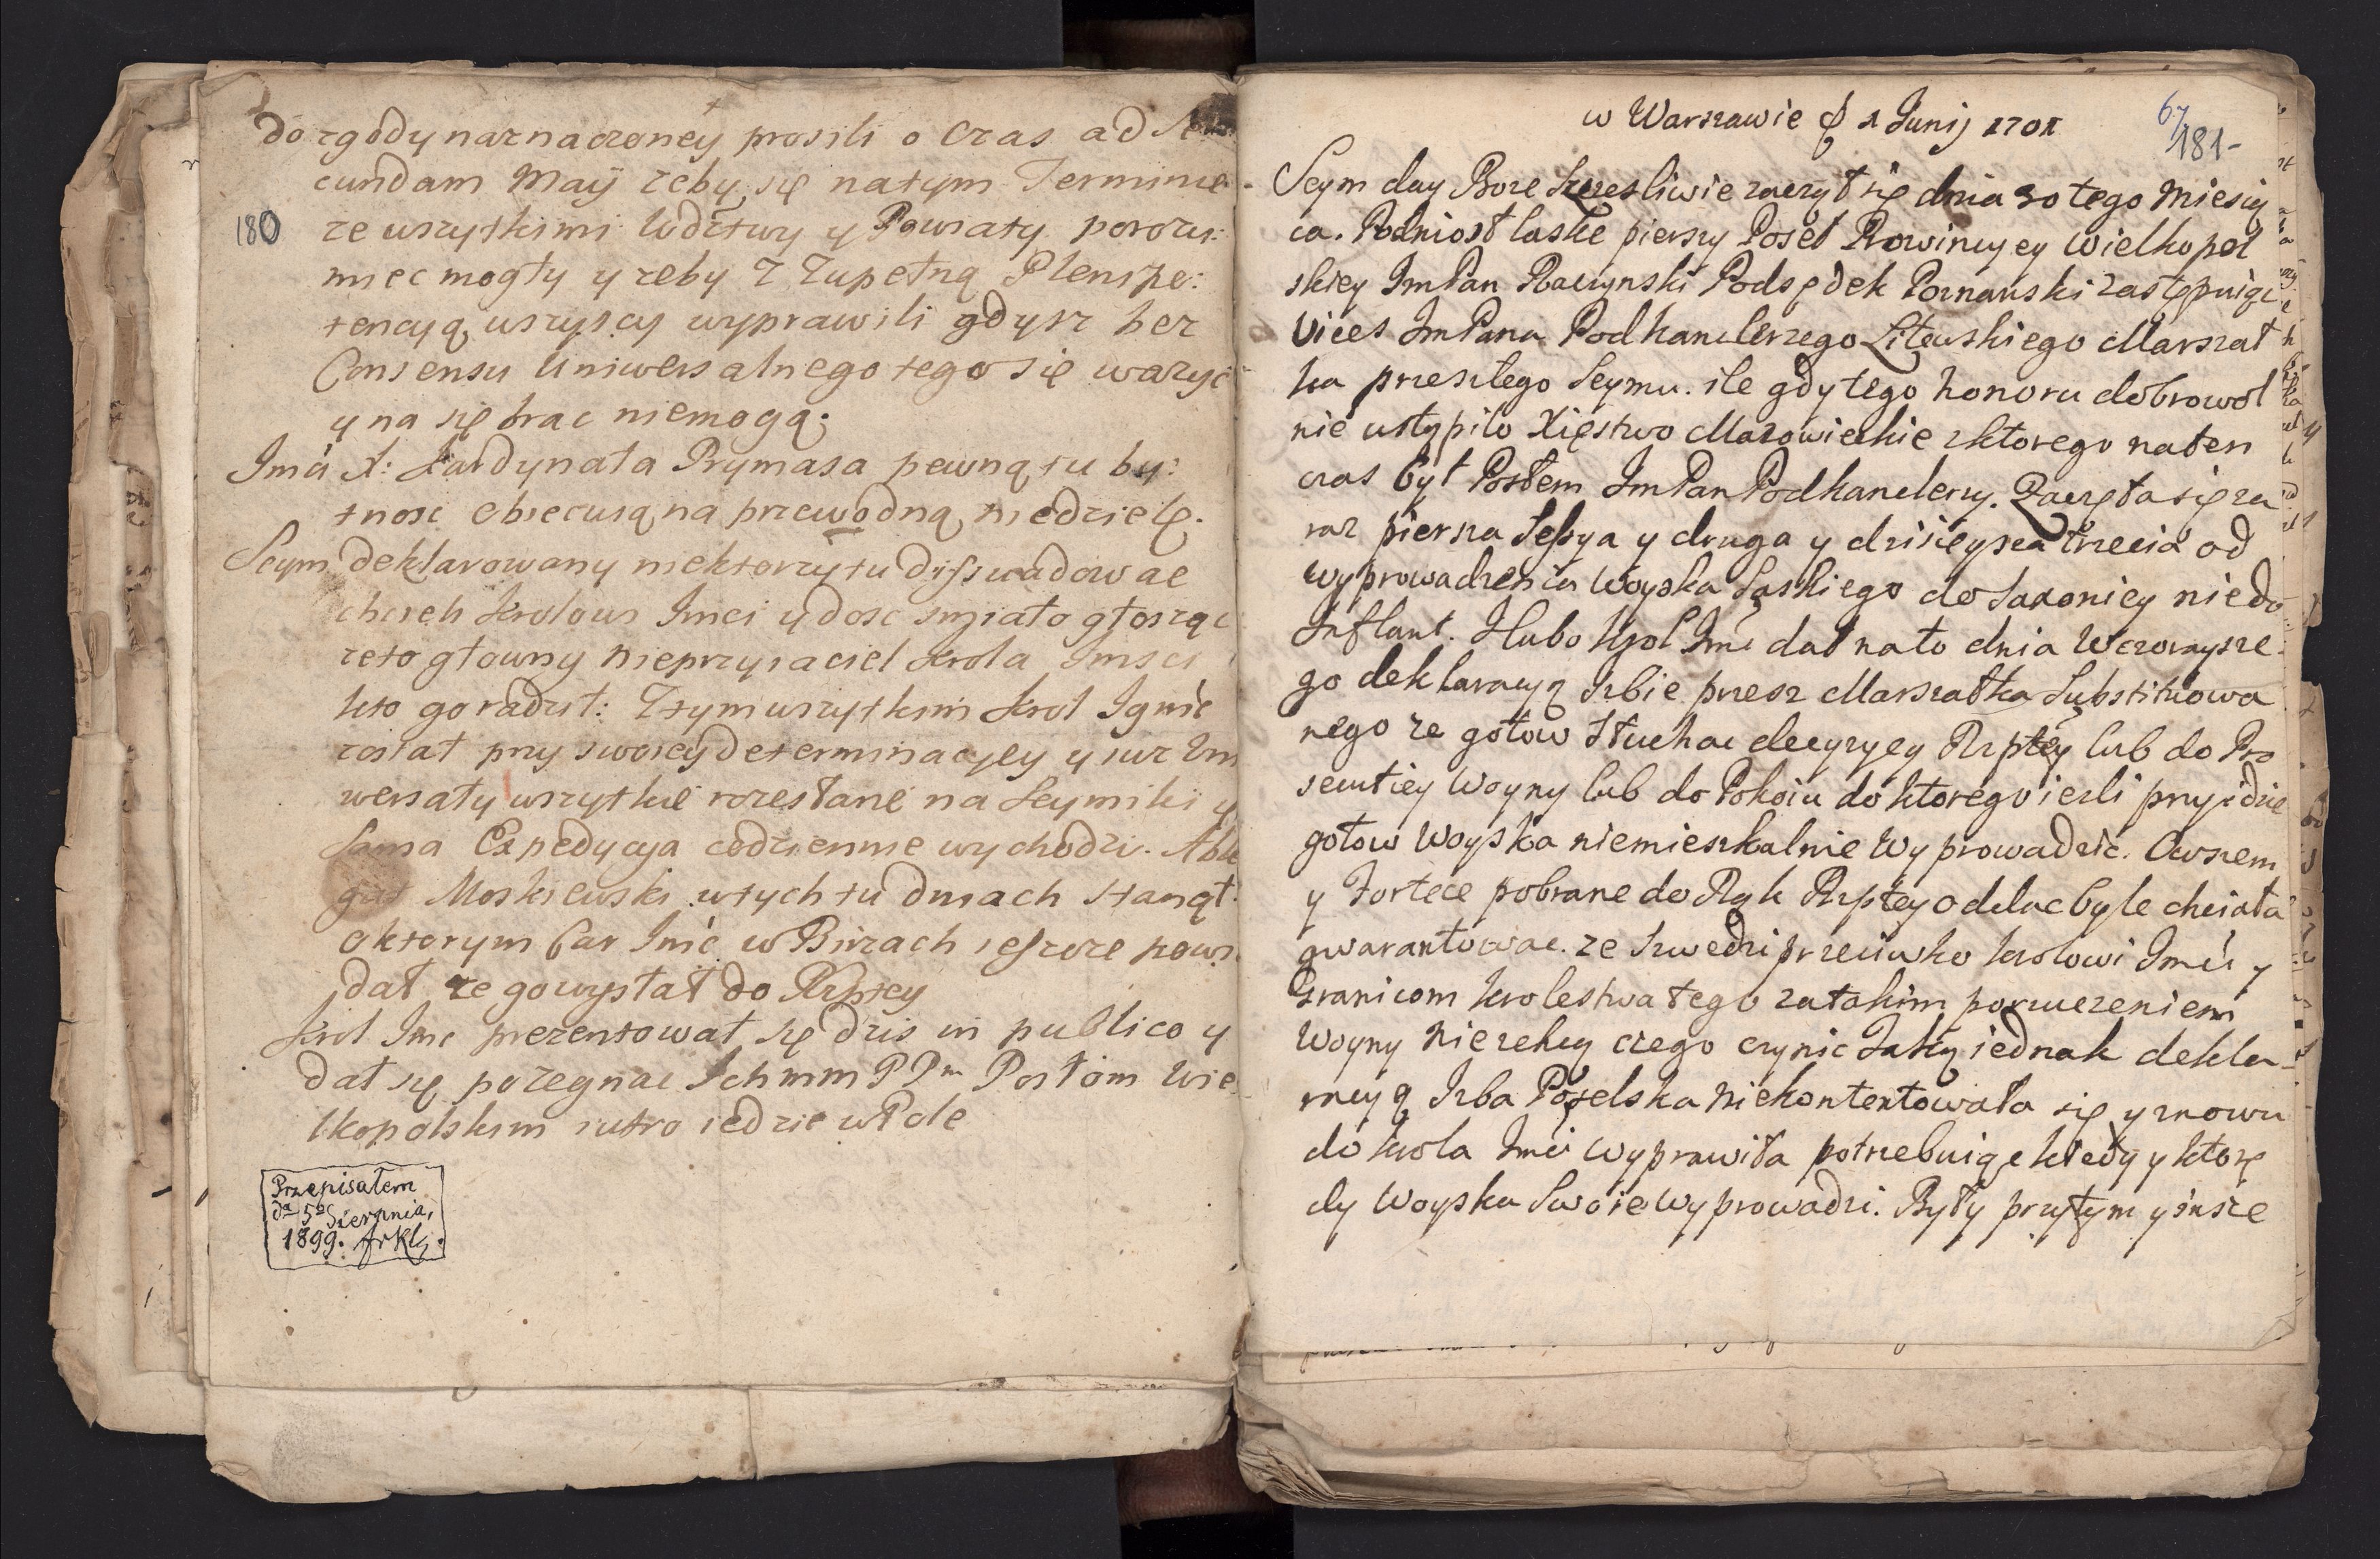 do zgody naznaczoney prosili o czas ad Se
cundam Maÿ zeby się natym Terminie
180
ze wszytkimi wdztwy y Powiaty porozu:
miec mogły y zeby z zupełną Plenipo:
tencyą wszyscy wyprawili gdysz bez
Consensu Uniwersalnego tego się wazyc
y na się brac niemogą;
Jmći X: Kardynała Prymasa pewną tu by:
tnosc obiecuią na przewodną niedzielę.
Seym deklarowany niektorzy tu disswadowac
chcieli Krolowi Jmci y dosc smiało głosząc
ze to głowny nieprzyiaciel Krola Jmsci
kto go radził: Z tym wszytkim Krol Jgmć
został przy swoiey determinacyey y iuz Uni
wersały wszytkie rozesłane na Seymiki y
sama Expedycya codziennie wychodzi. Able
gat Moskiewski w tych tu dniach stanął
o ktorym Car Jmć w Birzach ieszcze powi
dał ze go wysłał do Rzptey
Krol Jmc prezentował się dzis in publico y
dał się pozegnac Ichmm PPm Posłom Wie
lkopolskim iutro iedzie w Pole
Przepisałem
da 5o Sierpnia,
1899.
w Warszawie 1 Junij 1701
67
181-
Seym day Boze Szczesliwie zaczął się dnia 30 tego Miesią
ca. Podniosł laske pierszy Poseł Prowincyey Wielkopol
skiey ImPan Raczynski Podsędek Poznanski zastępuiąc
vices ImPana Podkanclerzego Litewskiego Marszał
ka przeszłego Seymu. ile gdy tego honoru dobrowol
nie ustąpiło Xięstwo Mazowieckie z ktorego na ten
czas był Posłem ImPan Podkanclerzy. Zaczęła się za
raz piersza Sessya y druga y dzisieysza trzecia od
wyprowadzenia Woyska Saskiego do Saxoniey nie do
Inflant. Hubo Krol Jmć dał na to dnia Wczorayszego
go deklaracyą Izbie przesz Marszałka Substituowa
nego ze gotow Słuchac decyzyey Rzptey lub do Pro
secutiey Woyny lub do Pokoiu do ktorego iezli przyidzie
gotow Woyska niemieszkalnie Wyprowadzić. Owszem
y Fortece pobrane do Rąk Rzptey oddac byle chciała
gwarantowac. ze Szwedzi przeciwko krolowi Jmći y
Granicom krolestwa tego za takim porzuceniem
Woyny nie zechcą czego czynic Taką iednak dekla-
racyą Izba Poselska niekontentowała się y znowu
do krola Jmći Wyprawiła potrzebuiąc kiedy y ktorę
dy Woyska Swoie Wyprowadzi. Były przytym y insze